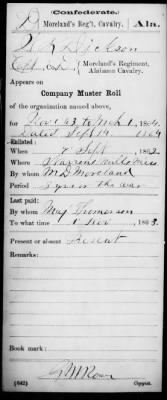 (Confederate.)
D Moreland's Reg't, Cavalry. Ala.
Dickson
Capt, Co. D, Moreland's Regiment, Alabama Cavalry.
Appears on
Company Muster Roll
of the organization named above,
for Nov 1 '63 to Mch 1, 1864.
Dated Sept 14 1864
Enlisted:
When Sept , 1862
Where
By whom M.D. Moreland
Period 3 years or the war
Last paid:
By whom Maj Thomason
To what time 1 Nov , 1863.
Present or absent Present
Remarks:
(642) Copyist.